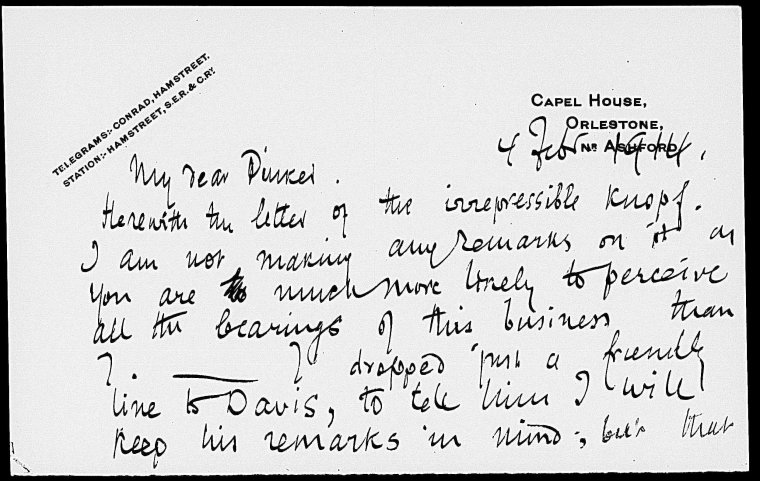 TELEGRAMS:- CONRAD, HAMSTREET.
STATION:- HAMSTREET, S.E.R. & C.RY.
CAPEL HOUSE,
ORLESTONE,
NR ASHFORD.
4 Febr 1914.
My dear Pinker.
Herewith the letter of the irrepressible Knopf.
I am not making any remarks on it as
you are much more likely to perceive
all the bearings of this business than
I. — I dropped just a friendly
line to Davis, to tell him I will
keep his remarks in mind; but that